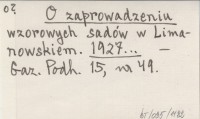 O zaprowadzeniu
wzorowych sadów w Lima-
nowskiem. 1927... –
Gaz. Podh. 15, nr 49.